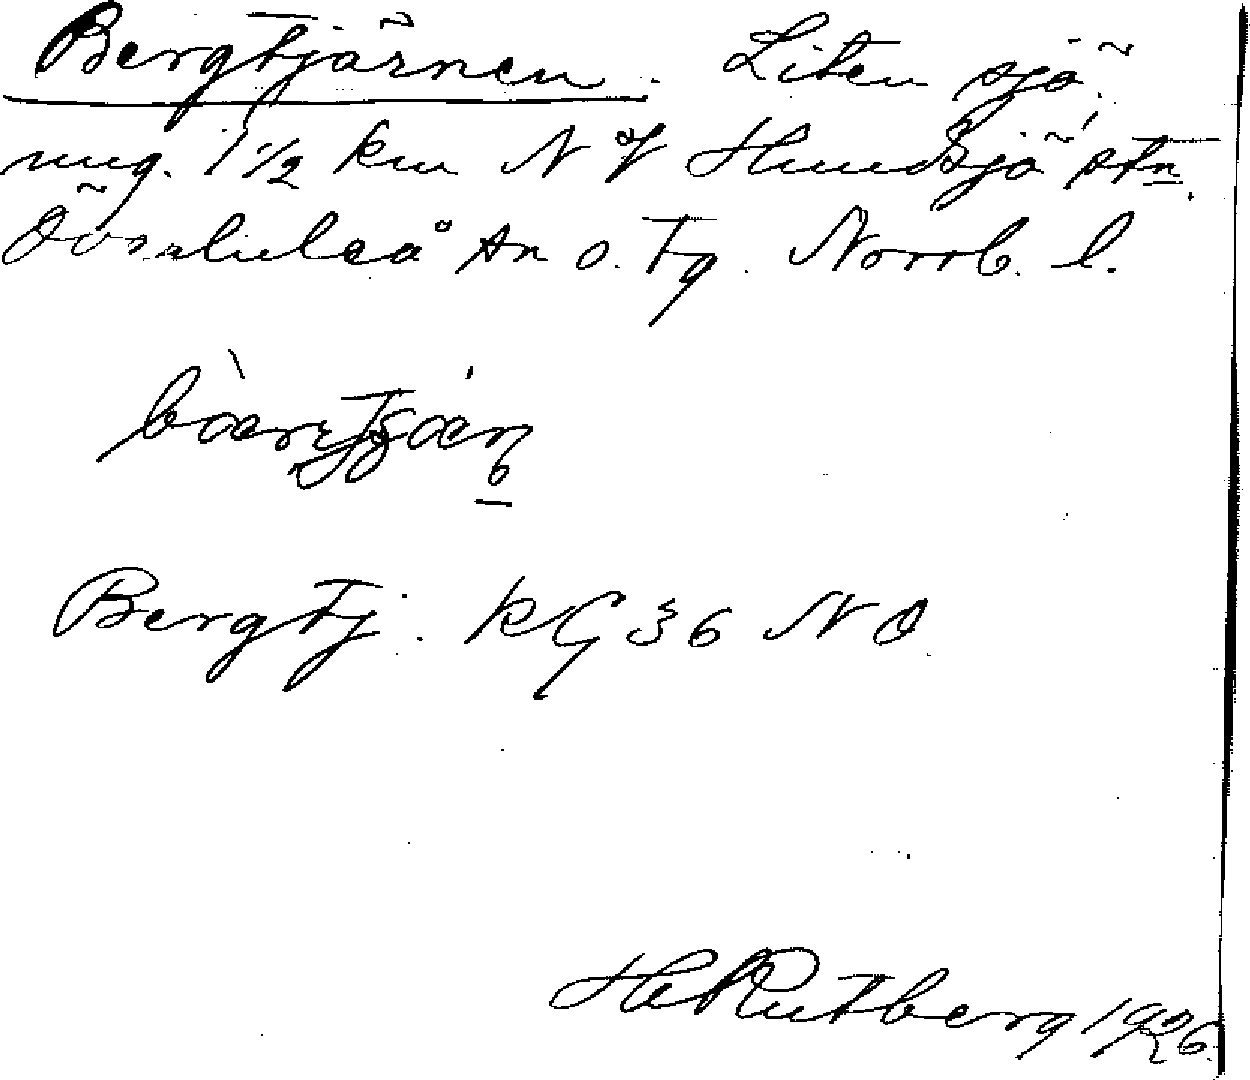 Bergtjärnen. Liten sjö
ung. 1 1/2 km N of Hundsjö stn.
Överluleå sn o. tg. Norrb. l.
Bergtj. KG 36 NO
H. Rutberg 1926.